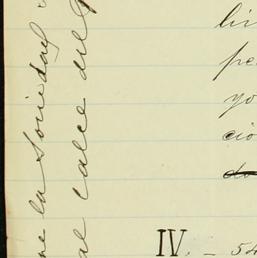 ne la Sociedad
al calce del
li
pe
yo
cio
do
IV. - 54